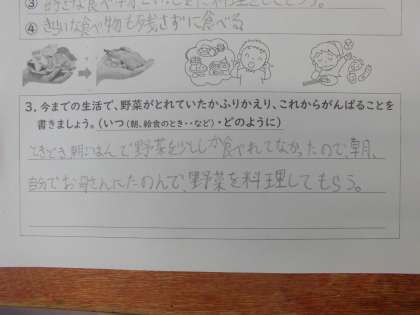 ③ 好きな食べ物といっしょに料理をしてもらう。
④ きらいな食べ物も残さずに食べる
3. 今までの生活で、野菜がとれていたかふりかえり、これからがんばることを
書きましょう。(いつ(朝、給食のとき・・など)・どのように)
ときどき朝ごはんで野菜を少ししか食べれてなかったので、朝、
自分でお母さんにたのんで、野菜を料理してもらう。